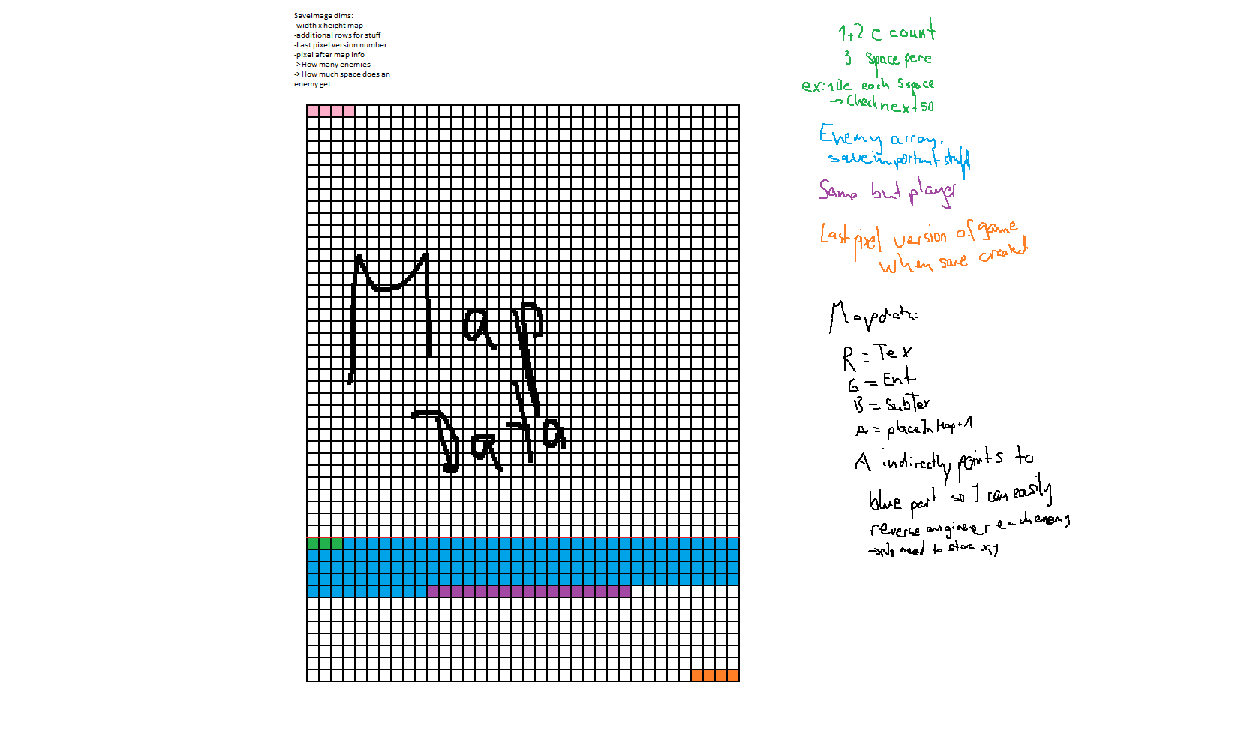 SaveImage dims:
-width x height map
-additional rows for stuff
-Last pixel version number
-pixel after map info
-> How many enemies
-> How much space does an
enemy get
Map
Data
1+2 c count
3 Space per e
ex: 10e each 5 space
→ Check next 50
Enemy array,
save important stuff
Same but player
Last pixel version of game
when save created
Mapdata:
R = Tex
G = Ent
B = SubTex
A = placeInMap+1
A indirectly points to
blue part so I can easily
reverse engineer each enemy
need to store x,y